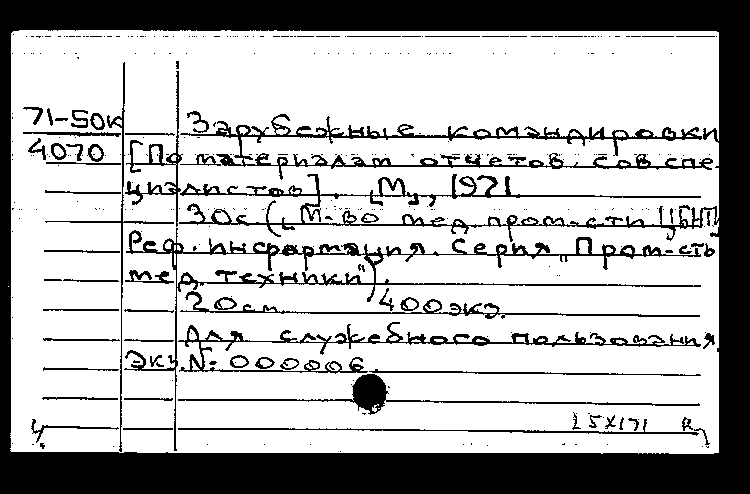 71-50к Зарубежные командировки
4070 [По материалам отчетов сов. спе-
циалистов]. [М.], 1971.
30с ([М-во мед. пром-сти. ЦБНТИ
Реф. информация. Серия „Пром-сть
мед. техники").
20 см. 400 экз.
Для служебного пользования.
Экз. № 000006.
25 X 171